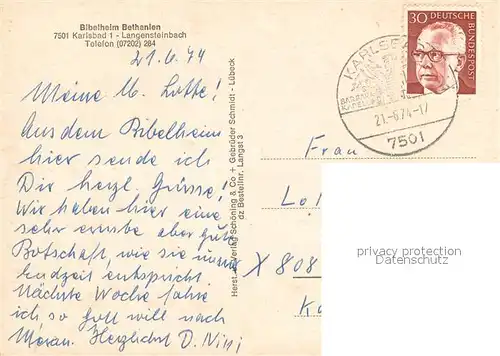 Bibelheim Bethanien
7501 Karlsbad 1 - Langensteinbach
Telefon (07202) 284
21.6.74
Meine lb. Lotte!
Aus dem Bibelheim
hier sende ich
Dir herzl. Grüsse!
Wir haben hier eine
sehr ernste aber gute
Botschaft, wie sie unserer
Endzeit entspricht.
Nächste Woche fahre
ich so Gott will nach
Meran. Herzlichst D.
Herst. u. Verlag Schöning & Co + Gebrüder Schmidt - Lübeck
dz Bestellnr. Langst 3
30 DEUTSCHE
BUNDESPOST
KARLSBAD
21.-6.74.-17
7501
Frau
Lo
X 808
privacy protection
Datenschutz